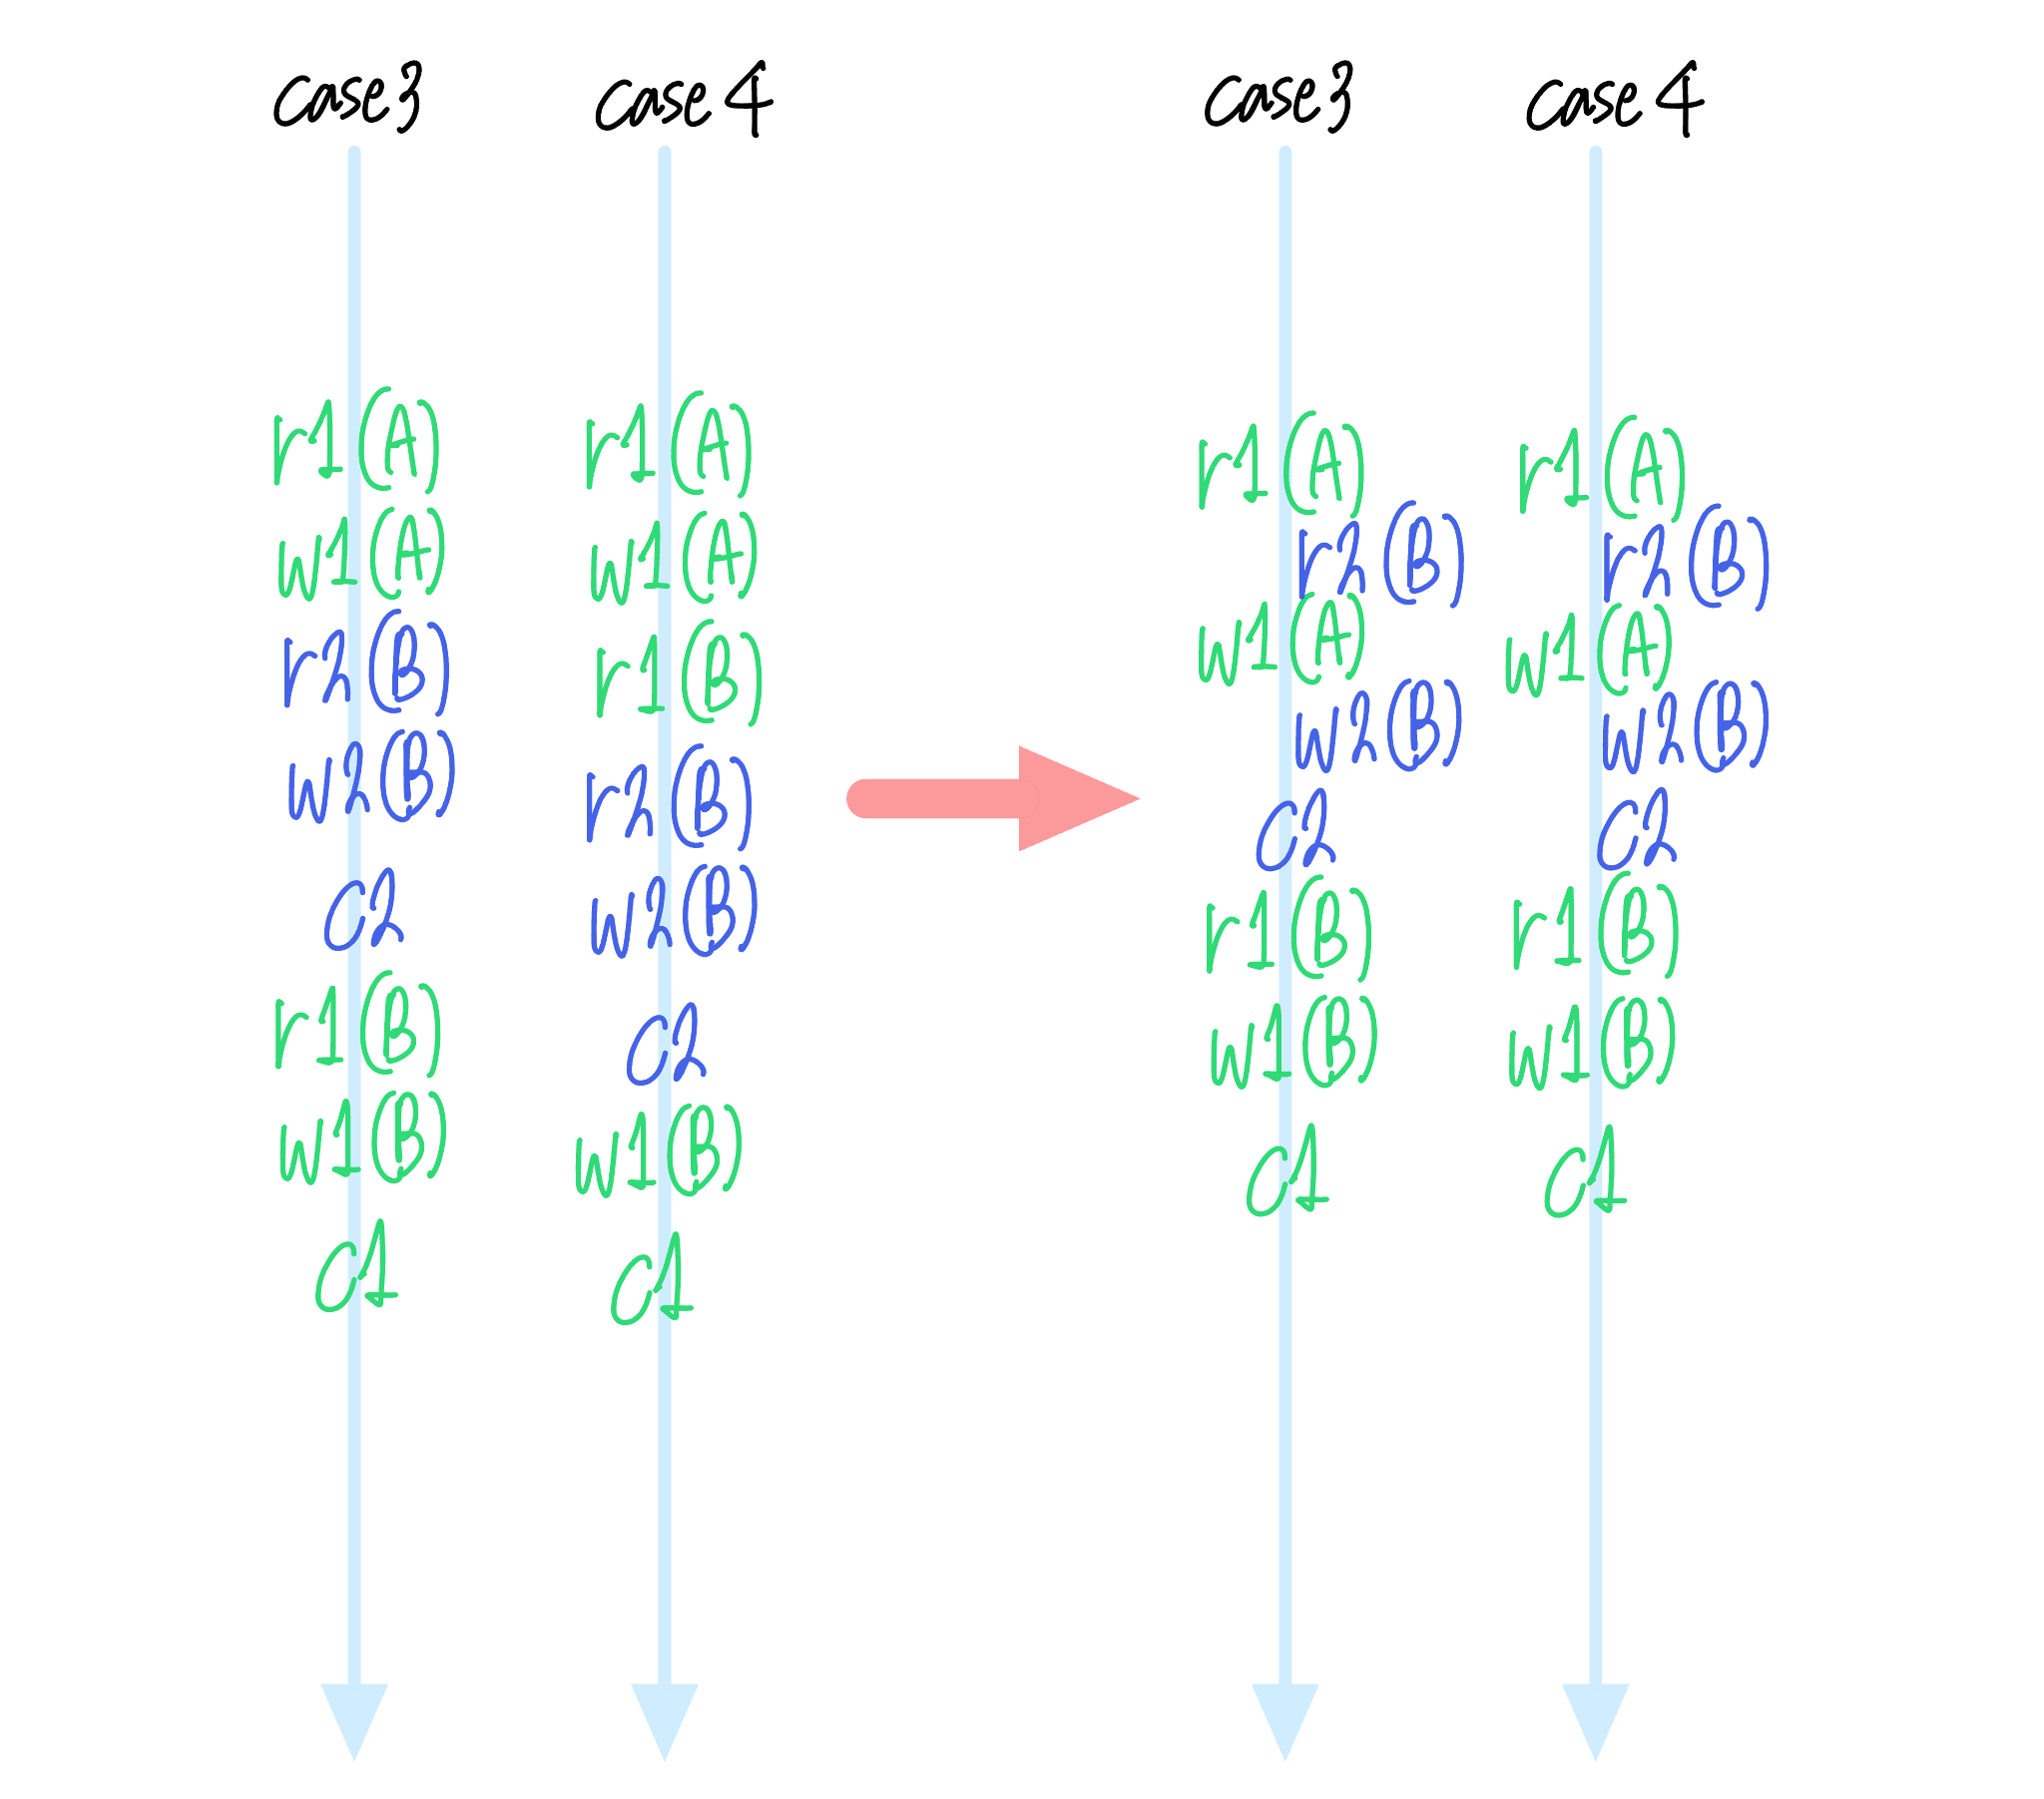 case3
r1(A)
w1(A)
r2(B)
w2(B)
c2
r1(B)
w1(B)
c1
case4
r1(A)
w1(A)
r1(B)
r2(B)
w2(B)
c2
w1(B)
c1
case3
r1(A)
r2(B)
w1(A)
w2(B)
c2
r1(B)
w1(B)
c1
case4
r1(A)
r2(B)
w1(A)
w2(B)
c2
r1(B)
w1(B)
c1